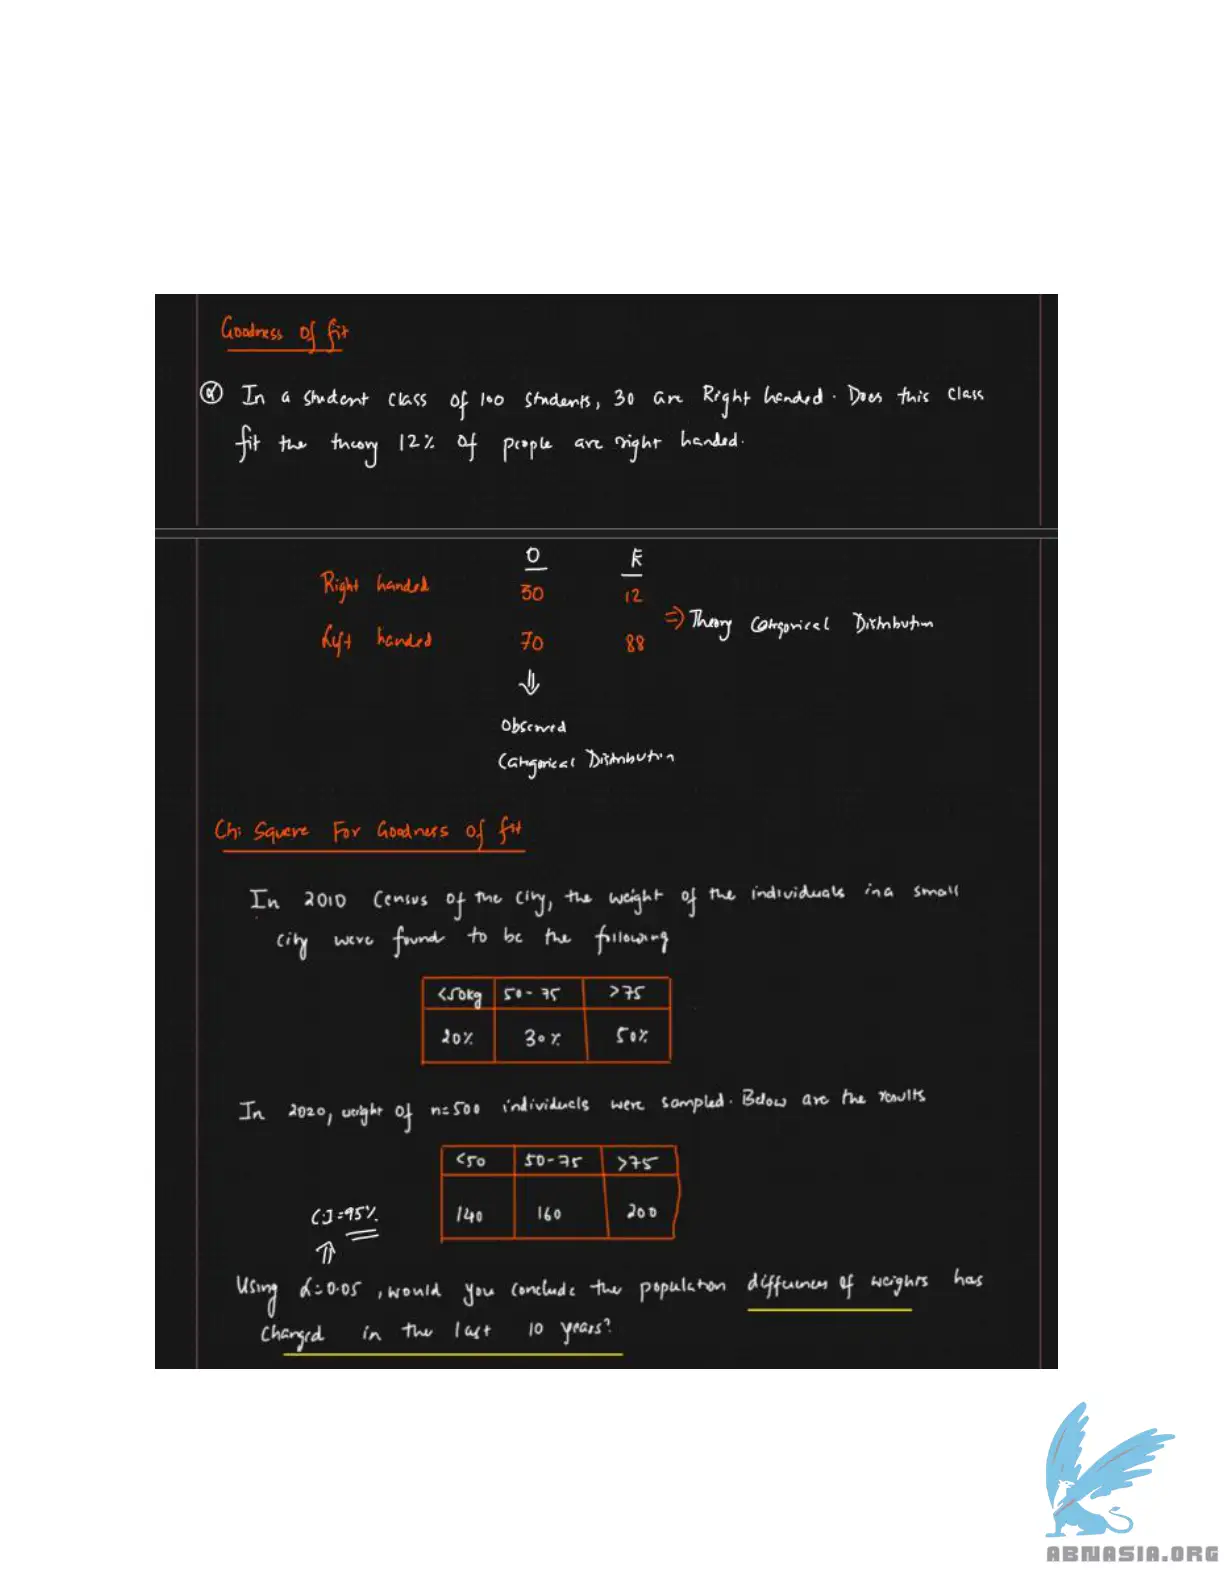 Goodness of fit
Q In a student class of 100 students, 30 are Right handed. Does this class
fit the theory 12% of people are right handed.
O E
Right handed 30 12
⇒ Theory Categorical Distribution
Left handed 70 88
⇓
Observed
Categorical Distribution
Chi Square For Goodness of fit
In 2010 Census of the city, the weight of the individuals in a small
city were found to be the following
<50kg 50-75 >75
20% 30% 50%
In 2020, weight of n=500 individuals were sampled. Below are the results
<50 50-75 >75
140 160 200
C.I=95%
⇑
Using α=0.05, would you conclude the population differences of weights has
changed in the last 10 years?
ABNASIA.ORG